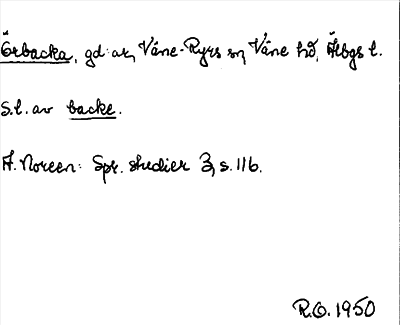 Örbacka, gd: ar, Väne-Ryrs sn, Väne hd, Älbgs l.
S.l. av backe.
A. Noreen: Spr. studier 3, s. 116.
R.O. 1950